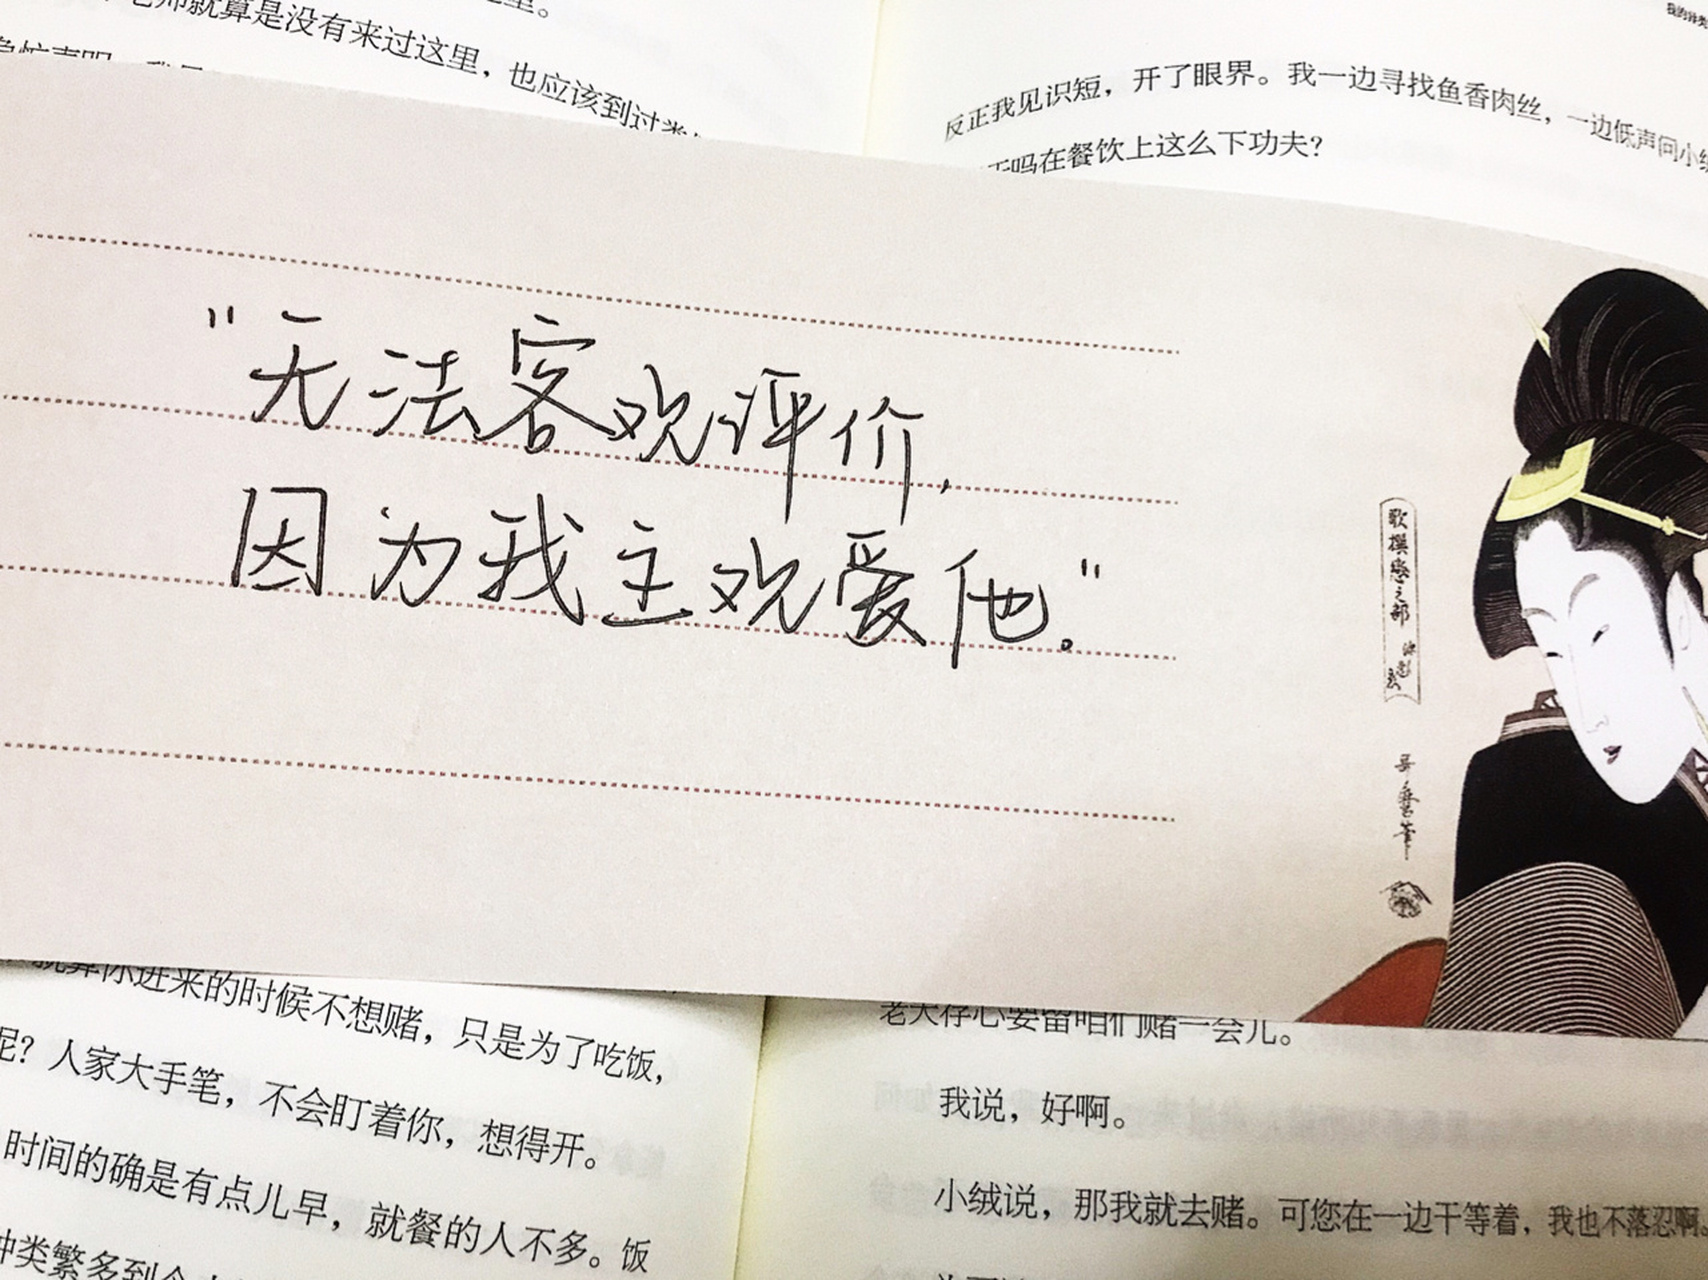 老师就算是没有来过这里，也应该到过类
我的种类
反正我见识短，开了眼界。我一边寻找鱼香肉丝，一边低声问小绒
干吗在餐饮上这么下功夫？
"无法客观评价,
因为我主观爱他。"
歌撰恋之部
哥麿筆
就算你进来的时候不想赌，只是为了吃饭，
呢？人家大手笔，不会盯着你，想得开。
时间的确是有点儿早，就餐的人不多。饭
种类繁多到令
老大存心要留咱们赌一会儿。
我说，好啊。
小绒说，那我就去赌。可您在一边干等着，我也不落忍啊。